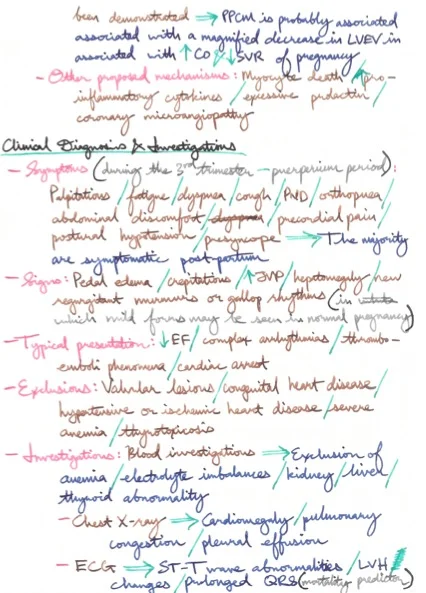 been demonstrated ⇒ PPCM is probably associated
associated with a magnified decrease in LVEV in
associated with ↑ CO / ↓ SVR of pregnancy
- Other proposed mechanisms: Myocyte death / pro-
inflammatory cytokines / excessive prolactin /
coronary microangiopathy
Clinical Diagnosis & Investigations
- Symptoms (during the 3rd trimester - puerperium period):
Palpitations / fatigue / dyspnea / cough / PND / orthopnea /
abdominal discomfort / dyspnea / precordial pain /
postural hypotension / presyncope ⇒ The majority
are symptomatic post-partum
- Signs: Pedal edema / crepitations / ↑ JVP / hepatomegaly / new
regurgitant murmurs or gallop rhythms (in
which mild forms may be seen in normal pregnancy)
- Typical presentation: ↓ EF / complex arrhythmias / thrombo-
emboli phenomena / cardiac arrest
- Exclusions: Valvular lesions / congenital heart disease /
hypertensive or ischemic heart disease / severe
anemia / thyrotoxicosis
- Investigations: Blood investigations ⇒ Exclusion of
anemia / electrolyte imbalances / kidney / liver /
thyroid abnormality
- Chest X-ray ⇒ Cardiomegaly / pulmonary
congestion / pleural effusion
- ECG ⇒ ST-T wave abnormalities / LVH /
changes / prolonged QRS (mortality predictor)